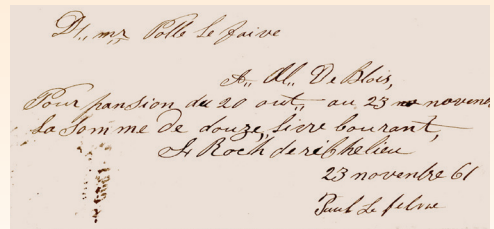 Dt., mr Polle Le faive
A.. M.. De Blois,
Pour pansion du 20 out, au 23 novenc
La Somme De douze, Livre Courant,
St Roch de richelieu
23 novenbre 61
Paul Lefebvre